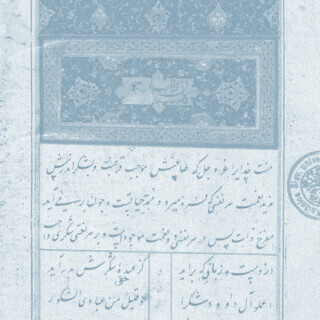 منت خدایرا عز و جل که طاعتش موجب قربتست و بشکر اندرش
مزید نعمت هر نفسی که فرو میرود ممد حیاتست و چون بر می آید
مفرح ذات پس در هر نفسی دو نعمت موجودست و بر هر نعمتی شکری واجب
از دست و زبان که بر آید
کز عهده شکرش بدر آید
اعملوا آل داود شکرا
و قلیل من عبادی الشکور